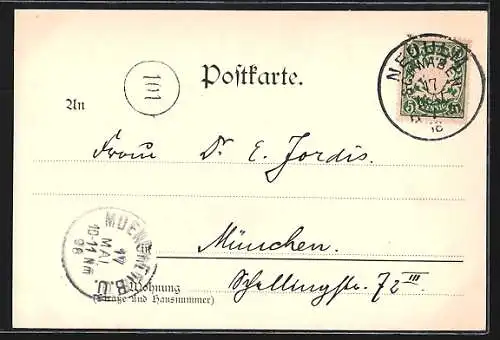 Postkarte.
101
NEUULM
SCHWABEN
17
5
An
Frau Dr. E. Jordis.
MUENCHEN B.U.
17
MAI
10-11 Nm
96
in
München.
Wohnung
(Straße und Hausnummer)
Schellingstr. 72 III